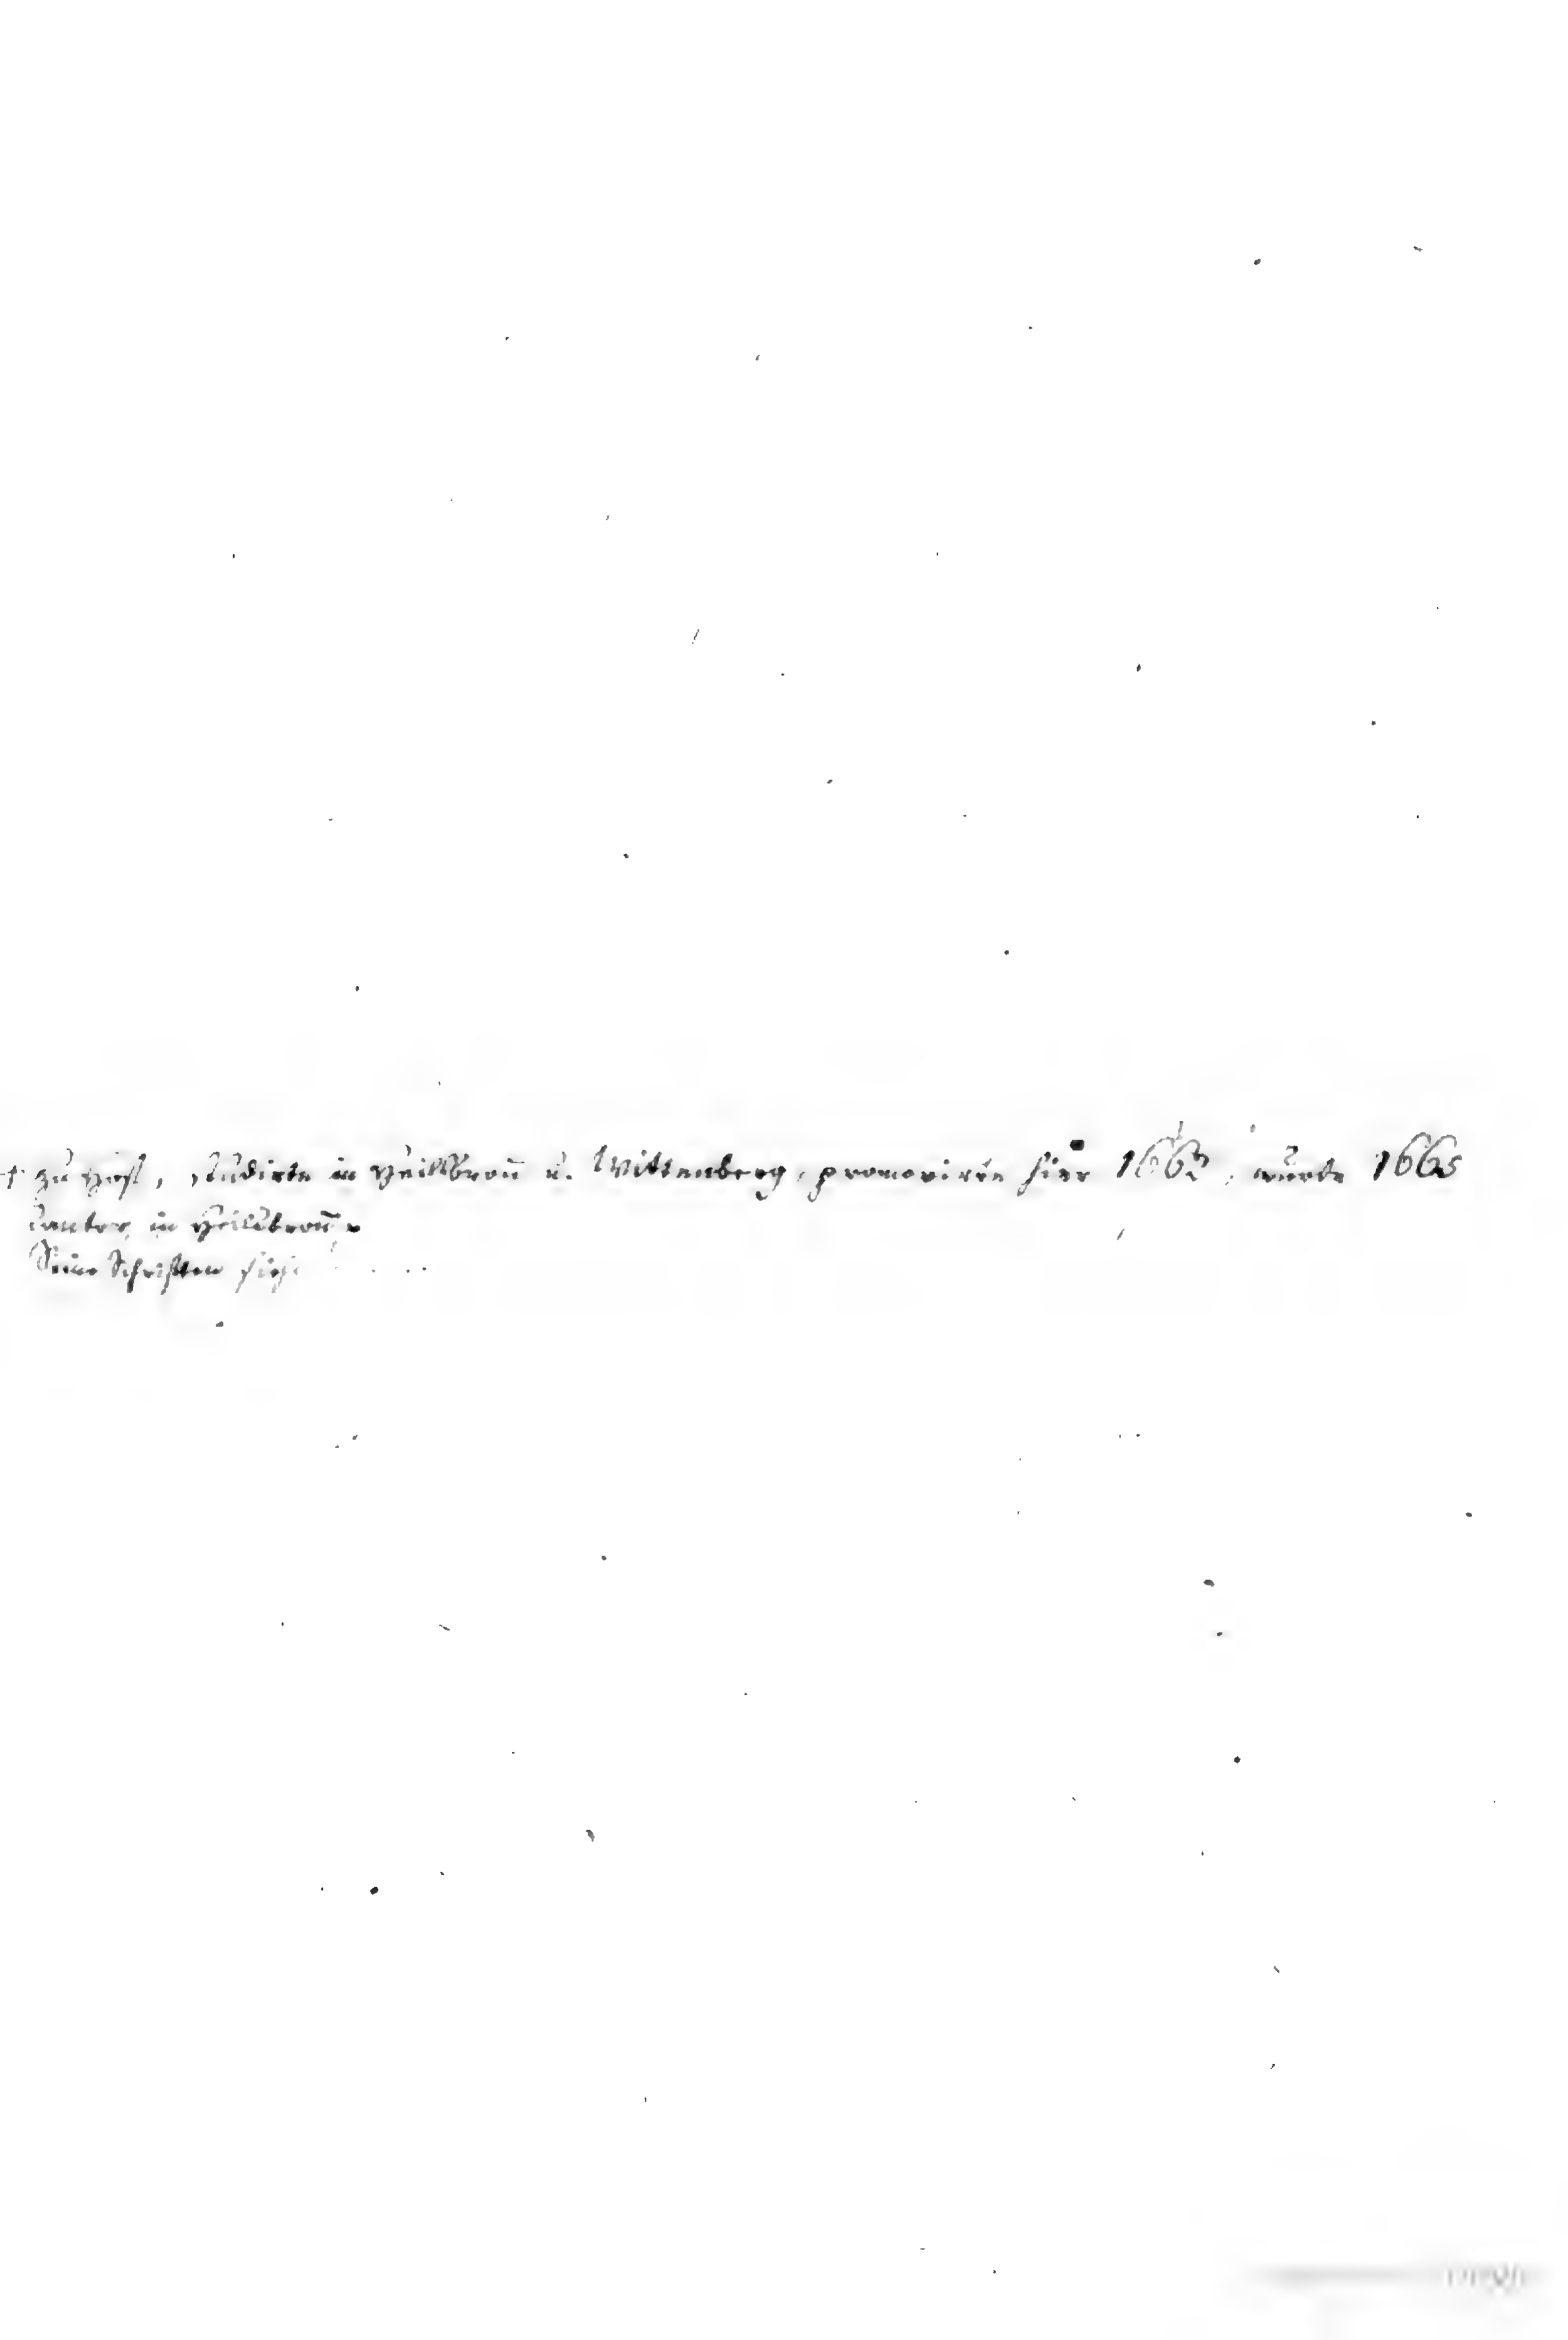 zu Hof, studirte in Heilsbroñ u. Wittenberg, promovirte hier 1662, wurde 1665
Cantor in Heilsbroñ.
Seine Schriften siehe